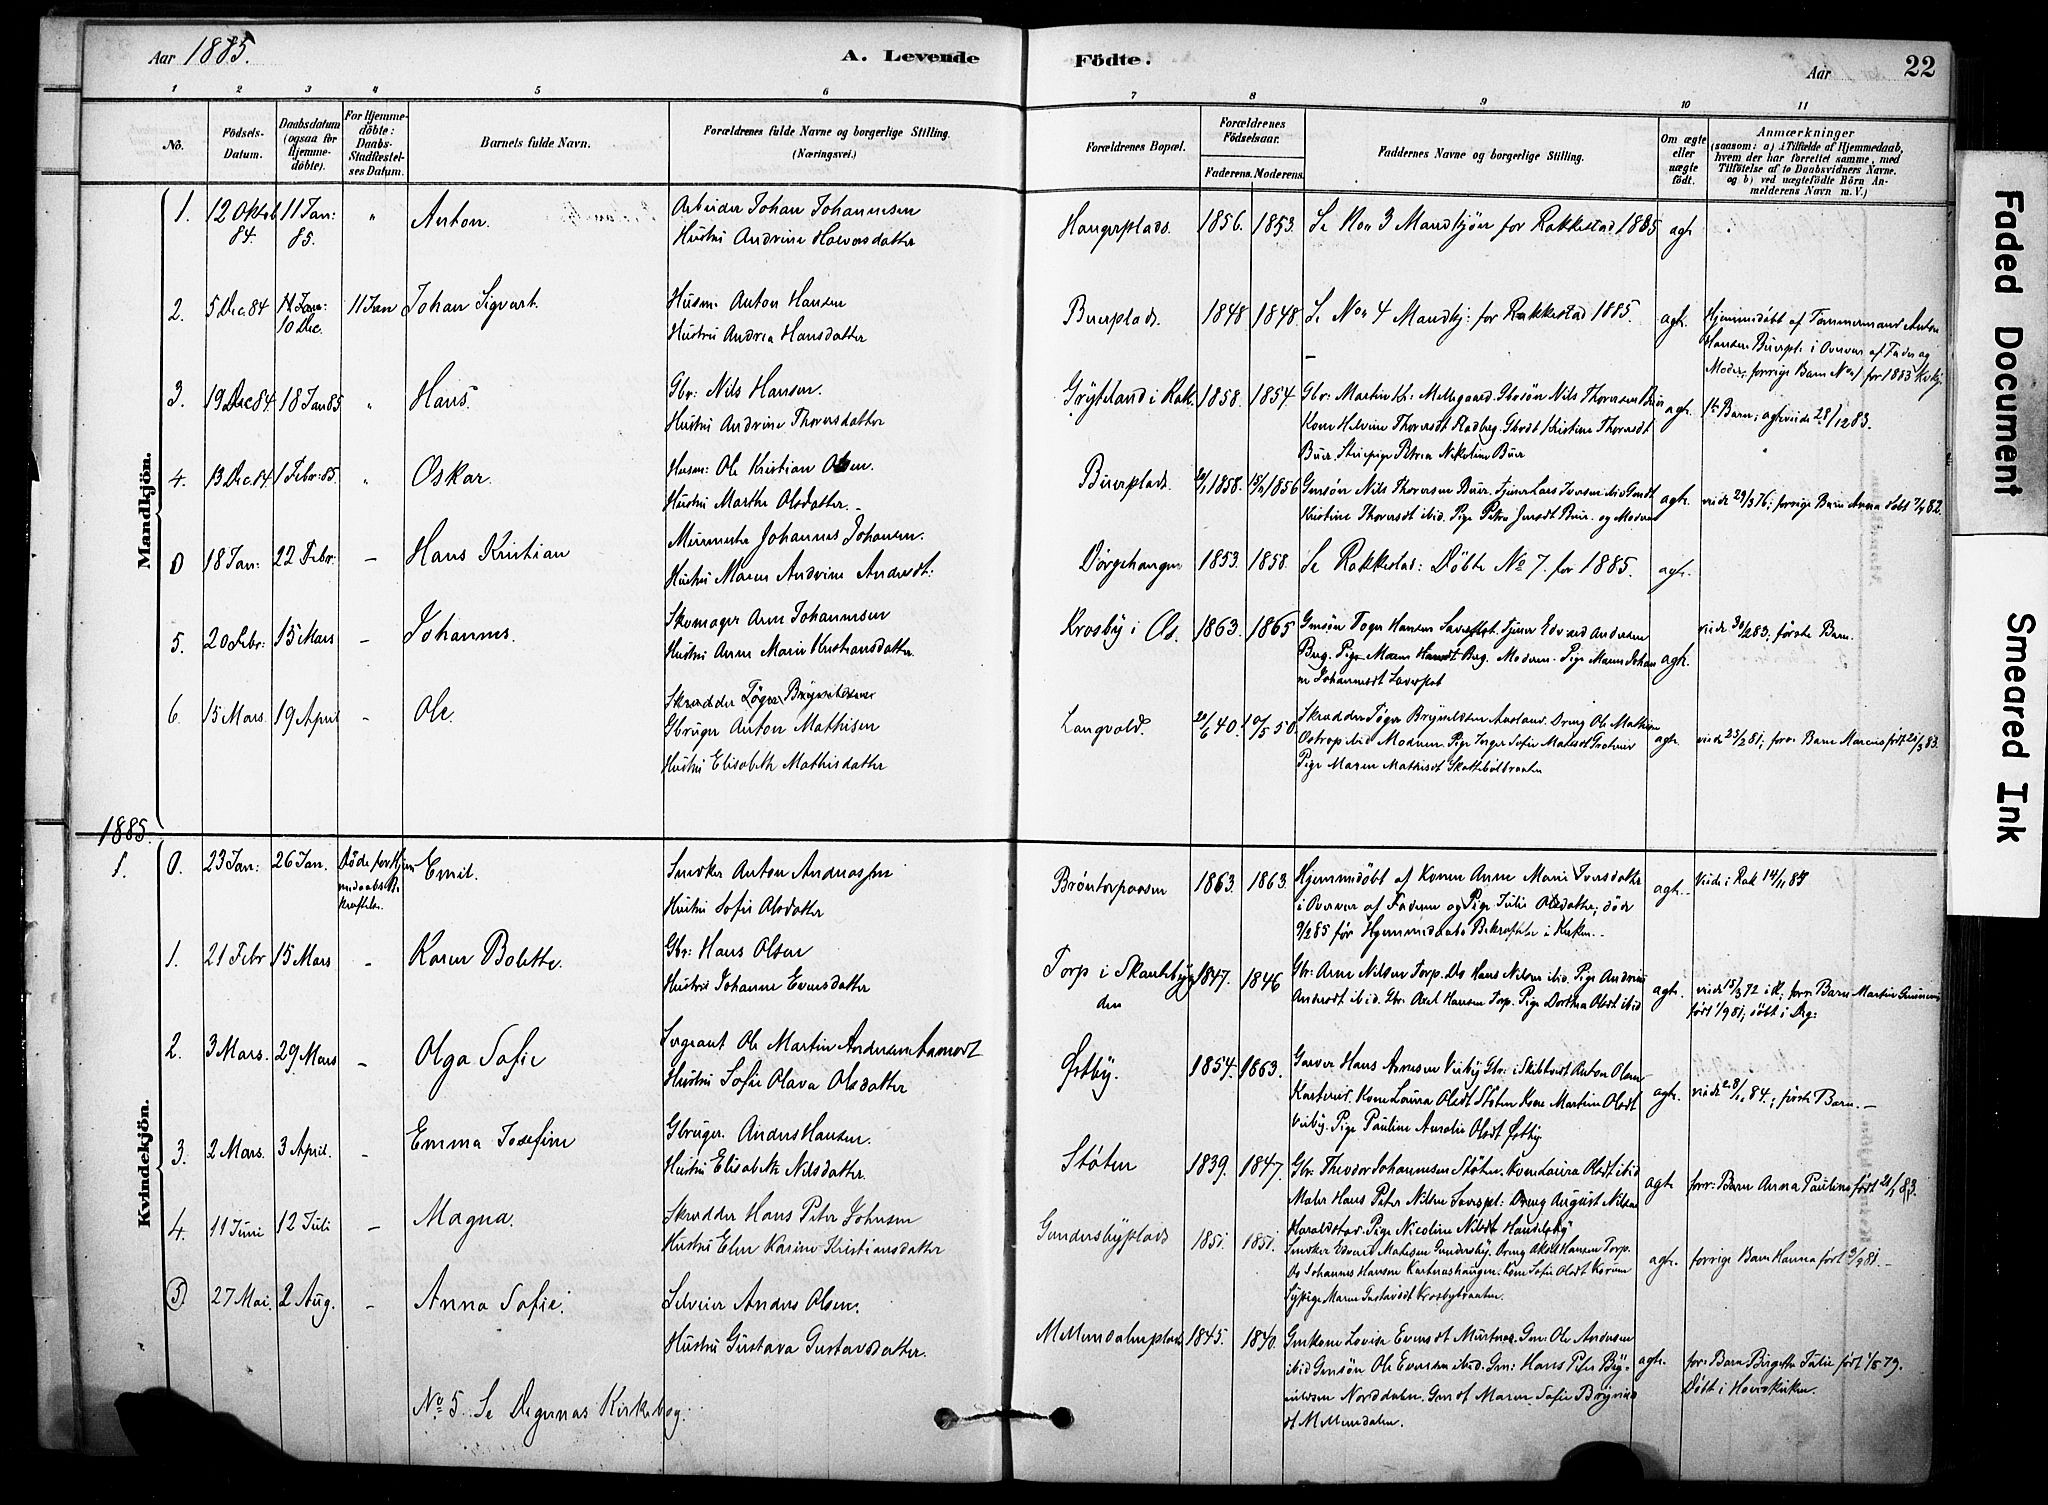 Aar 1885.
A. Levende
Födte.
Aar
22
1 2 3 4 5 6 7 8 9 10 11
No.
Födsels-
Datum.
Daabsdatum
(ogsaa for
Hjemme-
döbte).
For Hjemme-
döbte:
Daabs-
Stadfæstel-
ses Datum.
Barnets fulde Navn.
Forældrenes fulde Navne og borgerlige Stilling.
(Næringsvei.)
Forældrenes Bopæl.
Forældrenes
Fødselsaar.
Faderens. Moderens.
Faddernes Navne og borgerlige Stilling.
Om ægte
eller
uægte
födt.
Anmærkninger
(saasom: a) i Tilfælde af Hjemmedaab,
hvem der har forrettet samme, med
Tilföielse af to Daabsvidners Navne.
og b) ved uægtefödte Börn An-
melderens Navn m. V.)
Mandkjön.
1. 12 Oktob 84. 11 Jan: 85. " Anton.
Arbeider Johan Johannesen
Hustru Andrine Halvorsdatter
1856. 1853. Se No 3 Mandkjön for Rakkestad 1885 agt.
2. 5 Dec. 84 11 Jan: 10 Dec. 11 Jan Johan Sigvart.
Husm: Anton Hansen
Hustru Andrea Hansdatter
Buerplads. 1848 1848. Se No 4 Mandkj: for Rakkestad 1885. agt.
Hjemmedøbt af Tømmermand Anton
Hansen Buerpl. i Overvær af Fader og
Moder, forrige Barn No 1 for 1883
3. 19 Dec 84 18 Jan 85 " Hans.
Gbr: Nils Hansen.
Hustru Andrine Thoresdatter
Gryteland i Rak. 1858. 1854.
Gbr: Martin Mellegaard Gbsøn Nils Thoresen Buer
Kone Helvine Thoresdt Gbdt Kristine Thoresdt
Buer. Petrea Nikoline Buer
agt. 1te Barn; agtviede 28/12 83.
4. 13 Dec. 84. 1 Febr: 85. " Oskar.
Husm: Ole Kristian Olsen.
Hustru Marthe Olsdatter.
Buerplads. 1858. 1856
Gmsøn Nils Thoresen Buer. Tjener Lars Iversen ibid
Kristine Thoresdt ibid. Pige Petra Jensdt Buer. og Moderen
agt. viede 29/3 76; forrige Barn Anna døbt 7/4 82.
0 18 Jan: 22 Febr. – Hans Kristian
Murmester Johannes Johansen.
Hustru Maren Andrine Andersdt:
Dørgehangen 1853. 1858. Se Rakkestad: Døbte No 7. for 1885. agt.
5. 20 Febr: 15 Mars – Johannes.
Skomager Arne Johannesen
Hustru Anne Marie Kristiansdatter
Krosby i Os. 1863. 1865
Tjener Edvard Andersen
Berg. Pige Maren Hansdt Berg. Moderen. Pige Maren
Johannesdt
agt. viede 30/12 83; første Barn.
6. 15 Mars. 19 April – Ole.
Skrædder Töger Brynildsen
Gbruger Anton Mathisen
Hustru Elisabeth Mathisdatter
Langvold. 40. 50.
Skrædder Töger Brynildsen Dreng Ole Mathisen
Ostrop ibid Moderen. Pige Inger Sofie
Pige Maren Mathisdt Skattebølbraaten
agt. viede 23/2 81; forr Barn Marcus født 83.
1885.
Kvindekjön.
1. 0. 23 Jan: 26 Jan. Döde før Hjemmedaabs Bekræftelse Emil.
Smeker Anton Andreassen
Hustru Sofie Olsdatter
1863. 1863.
Hjemmedöbt af Konen Anne Marie Iversdatter
i Overvær af Faderen og Pige Julie Olsdatter; døde
9/2 85 før Hjemmedaabs Bekræftelse i Kirken.
agt. Viede i Rak 14/11 84
1. 21 Febr 15 Mars – Karen Bolette.
Gbr: Hans Olsen
Hustru Johanne Eversdatter
Torp i Skantebygden 1847. 1846
Gbr: Arne Nilsen Torp. Do Hans Nilsen ibid. Pige Andrine
Andersdt ibid. Gbr: Axel Hansen Torp. Pige Dorthea Olsdt ibid
agt. viede 15/3 72 forr. Barn Martin
født 1/9 81, døbt i Deg:
2. 3 Mars. 29 Mars – Olga Sofie
Sergeant Ole Martin Andersen Aamodt
Hustru Sofie Olava Olsdatter
Østby. 1854. 1863.
Garver Hans Arnesen Visby Gbr: i Skibtvedt Anton Olsen
Kasterud. Kone Laura Olsdt Støten Kone Martine Olsdt
Visby. Pige Pauline Amalie Olsdt Østby
agt. viede 28/11 84.; første Barn. –
3. 2 Mars. 3 April. – Emma Josefine
Gbruger. Anders Hansen.
Hustru Elisabeth Nilsdatter
Støten 1839. 1847.
Gbr: Theodor Johannesen Støten. Kone Laura Olsdt ibid
Maler Hans Peter Nilsen Dreng August Nilsen
Haraldstad. Pige Nicoline Nilsdt Haudelsby
agt forr: Barn Anna Pauline født 21/1 83.
4. 11 Juni 12 Juli – Magna.
Skrædder Hans Peter Johnsen
Hustru Elen Karine Kristiansdatter
Gundersbyplads 1851. 1851.
Smeker Edvard Mathisen Gundersby. Dreng Aksel Hansen Torp.
Do Johannes Hansen Kasterashaugen. Kone Sofie Olsdt
Sypige Maren Gustavsdt Krosbybraaten
agt. forrige Barn Hanna født 3/9 81. –
(5) 27 Mai. 2 Aug. – Anna Sofie.
Selveier Anders Olsen.
Hustru Gustava Gustavsdatter.
Mellemdalenplads 1845. 1840.
Gmkone Lovise Evensdt Gm: Ole Andersen
ibid Gmsøn Ole Evensen ibid. Gm: Hans Peter Bry-
nildsen Norddalen. Maren Sofie
Mellemdalen.
agt. forr: Barn Birgitta Julie født 1/5 79.
Døbt i
No 5. Se Degernæs Kirkebog.
Faded Document
Smeared Ink